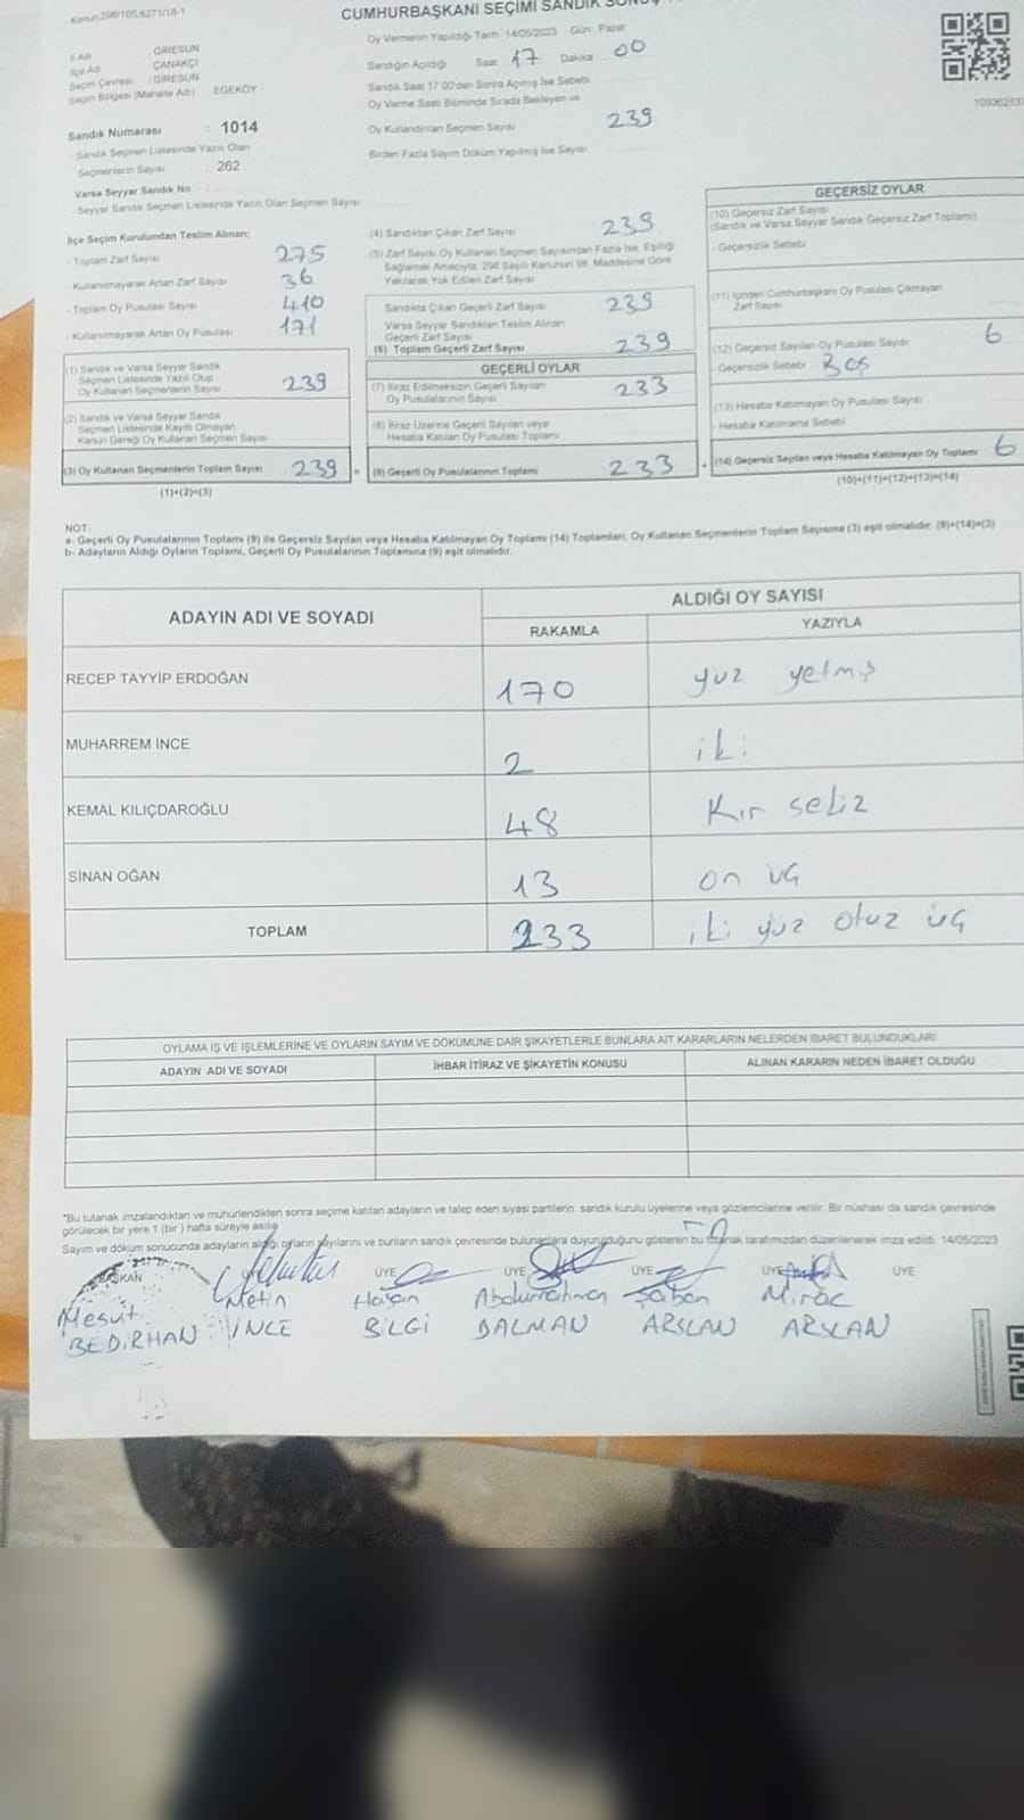 Kanun:298/105,6271/18-1
CUMHURBAŞKANI SEÇİMİ SANDIK
Oy Vermenin Yapıldığı Tarih: 14/05/2023 Gün: Pazar
İl Adı : GİRESUN
İlçe Adı : ÇANAKÇI
Seçim Çevresi : GİRESUN
Seçim Bölgesi (Mahalle Adı) : EGEKÖY
Sandığın Açıldığı Saat 17 Dakika 00
Sandık Saat 17:00'den Sonra Açılmış İse Sebebi
Oy Verme Saati Bitiminde Sırada Bekleyen ve
Oy Kullandırılan Seçmen Sayısı 239
Birden Fazla Sayım Döküm Yapılmış İse Sayısı
Sandık Numarası : 1014
Sandık Seçmen Listesinde Yazılı Olan
Seçmenlerin Sayısı : 262
Varsa Seyyar Sandık No
Seyyar Sandık Seçmen Listesinde Yazılı Olan Seçmen Sayısı
İlçe Seçim Kurulundan Teslim Alınan;
- Toplam Zarf Sayısı 275
- Kullanılmayarak Artan Zarf Sayısı 36
- Toplam Oy Pusulası Sayısı 410
- Kullanılmayarak Artan Oy Pusulası 171
(1) Sandık ve Varsa Seyyar Sandık
Seçmen Listesinde Yazılı Olup
Oy Kullanan Seçmenlerin Sayısı 239
(2) Sandık ve Varsa Seyyar Sandık
Seçmen Listesinde Kayıtlı Olmayan
Kanun Gereği Oy Kullanan Seçmen Sayısı
(3) Oy Kullanan Seçmenlerin Toplam Sayısı 239
(1)+(2)=(3)
(4) Sandıktan Çıkan Zarf Sayısı 239
(5) Zarf Sayısı Oy Kullanan Seçmen Sayısından Fazla İse, Eşitliği
Sağlamak Amacıyla, 298 Sayılı Kanunun 98. Maddesine Göre
Yakılarak Yok Edilen Zarf Sayısı
Sandıkta Çıkan Geçerli Zarf Sayısı 239
Varsa Seyyar Sandıktan Teslim Alınan
Geçerli Zarf Sayısı
(6) Toplam Geçerli Zarf Sayısı 239
GEÇERLİ OYLAR
(7) İtiraz Edilmeksizin Geçerli Sayılan
Oy Pusulalarının Sayısı 233
(8) İtiraz Üzerine Geçerli Sayılan veya
Hesaba Katılan Oy Pusulası Toplamı
(9) Geçerli Oy Pusulalarının Toplamı 233
GEÇERSİZ OYLAR
(10) Geçersiz Zarf Sayısı
(Sandık ve Varsa Seyyar Sandık Geçersiz Zarf Toplamı)
- Geçersizlik Sebebi
(11) İçinden Cumhurbaşkanı Oy Pusulası Çıkmayan
Zarf Sayısı
(12) Geçersiz Sayılan Oy Pusulası Sayısı 6
- Geçersizlik Sebebi Boş
(13) Hesaba Katılmayan Oy Pusulası Sayısı
- Hesaba Katılmama Sebebi
(14) Geçersiz Sayılan veya Hesaba Katılmayan Oy Toplamı 6
(10)+(11)+(12)+(13)=(14)
NOT:
a- Geçerli Oy Pusulalarının Toplamı (9) ile Geçersiz Sayılan veya Hesaba Katılmayan Oy Toplamı (14) Toplamları, Oy Kullanan Seçmenlerin Toplam Sayısına (3) eşit olmalıdır. (9)+(14)=(3)
b- Adayların Aldığı Oyların Toplamı, Geçerli Oy Pusulalarının Toplamına (9) eşit olmalıdır.
ADAYIN ADI VE SOYADI
ALDIĞI OY SAYISI
RAKAMLA YAZIYLA
RECEP TAYYİP ERDOĞAN 170 yüz yetmiş
MUHARREM İNCE 2 iki
KEMAL KILIÇDAROĞLU 48 Kır sekiz
SİNAN OĞAN 13 on üç
TOPLAM 233 iki yüz otuz üç
OYLAMA İŞ VE İŞLEMLERİNE VE OYLARIN SAYIM VE DÖKÜMÜNE DAİR ŞİKAYETLERLE BUNLARA AİT KARARLARIN NELERDEN İBARET BULUNDUKLARI
ADAYIN ADI VE SOYADI İHBAR İTİRAZ VE ŞİKAYETİN KONUSU ALINAN KARARIN NEDEN İBARET OLDUĞU
*Bu tutanak imzalandıktan ve mühürlendikten sonra seçime katılan adayların ve talep eden siyasi partilerin, sandık kurulu üyelerine veya gözlemcilerine verilir. Bir nüshası da sandık çevresinde
görülecek bir yere 1 (bir) hafta süreyle asılır.
Sayım ve döküm sonucunda adayların aldığı oyların sayılarını ve bunların sandık çevresinde bulunanlara duyurulduğunu gösteren bu tutanak tarafımızdan düzenlenerek imza edildi. 14/05/2023
BAŞKAN ÜYE ÜYE ÜYE ÜYE ÜYE
Mesut Metin Hasan Abdurrahman Şaban Miraç
BEDİRHAN İNCE BİLGİ DALMAN ARSLAN ARSLAN